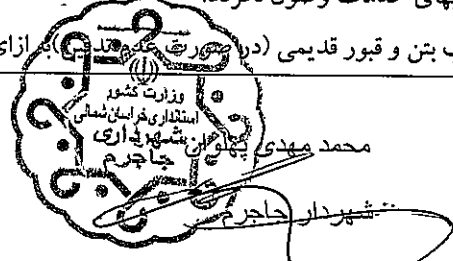 خدمات وصول
ب بتن و قبور قدیمی (در صورت عدم تدفین) به ازای
وزارت کشور
استانداری خراسان شمالی
شهرداری
جاجرم
محمد مهدی پهلوان
شهردار جاجرم